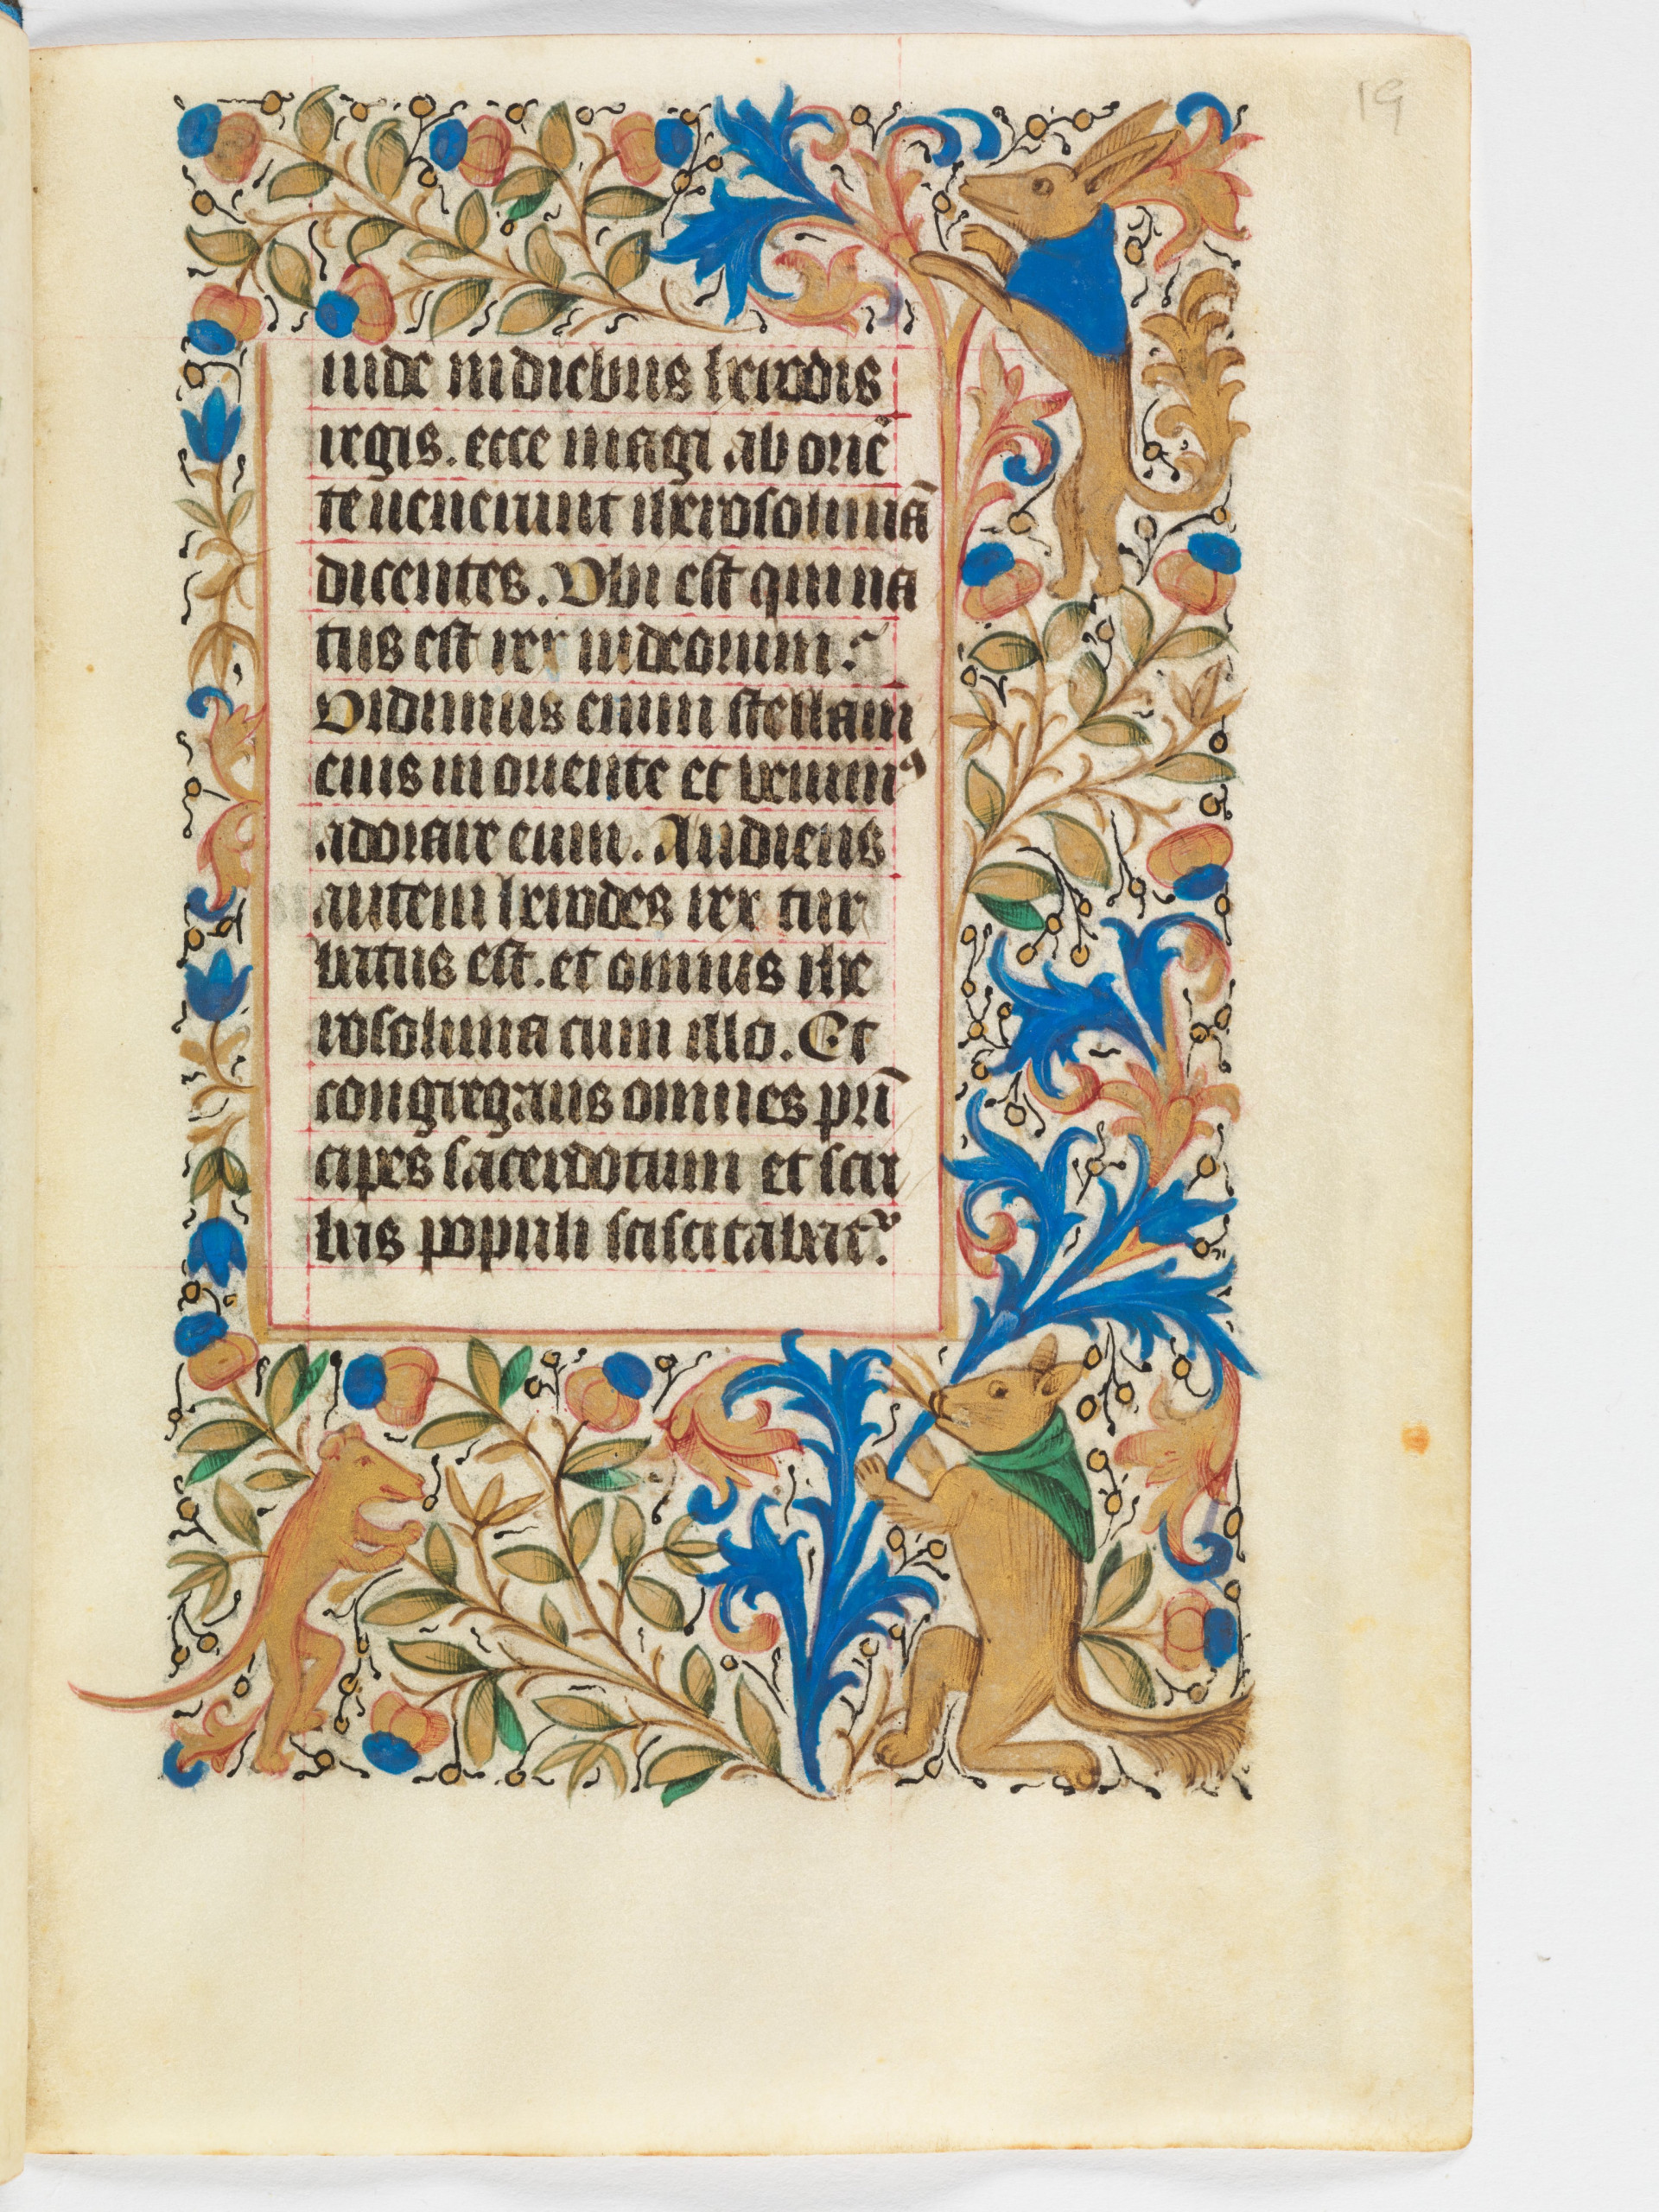 19
iude in diebus herodis
regis. ecce magi ab oriē
te uenerunt iherosolimā
dicentes. Vbi est qui na
tus est rex iudeorum?
Vidimus enim stellam
eius in oriente et venimꝰ
adorare eum. Audiens
autem herodes rex tur
batus est. et omnis ihe
rosolima cum illo. Et
congregans omnes pri̅
cipes sacerdotum et scri
bas populi sciscitabat᷑.